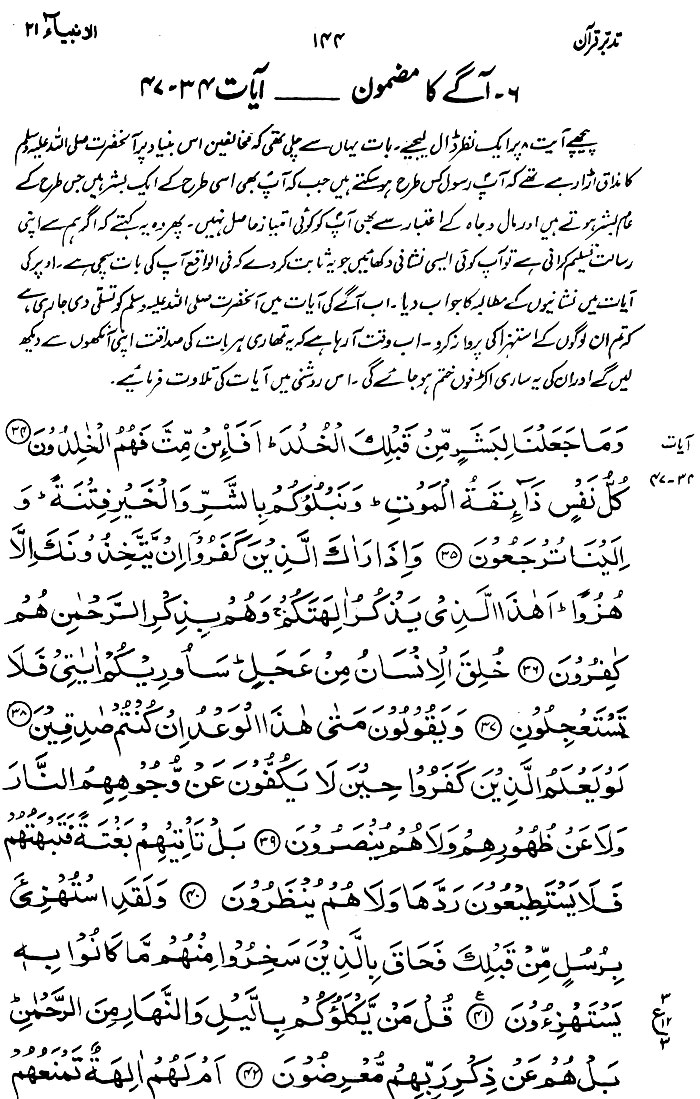 تدبر قرآن ۱۴۴ الانبیاء ۲۱
۶- آگے کا مضمون ــــــ آیات ۳۴-۴۷
پیچھے آیت ۸ پر ایک نظر ڈال لیجیے۔ بات یہاں سے چلی تھی کہ مخالفین اس بنیاد پر آنحضرت صلی اللہ علیہ وسلم
کا مذاق اڑا رہے تھے کہ آپؐ رسول کس طرح ہو سکتے ہیں جب کہ آپؐ بھی اسی طرح کے ایک بشر ہیں جس طرح کے
عام بشر ہوتے ہیں اور مال و جاہ کے اعتبار سے بھی آپؐ کو کوئی امتیاز حاصل نہیں۔ پھر وہ یہ کہتے کہ اگر ہم سے اپنی
رسالت تسلیم کرانی ہے تو آپ کوئی ایسی نشانی دکھائیں جو یہ ثابت کر دے کہ فی الواقع آپ کی بات سچی ہے۔ اوپر کی
آیات میں نشانیوں کے مطالبہ کا جواب دیا۔ اب آگے کی آیات میں آنحضرت صلی اللہ علیہ وسلم کو تسلی دی جا رہی ہے
کہ تم ان لوگوں کے استہزا کی پروا نہ کرو۔ اب وقت آ رہا ہے کہ یہ تمھاری ہر بات کی صداقت اپنی آنکھوں سے دیکھ
لیں گے اور ان کی یہ ساری اکڑفوں ختم ہو جائے گی۔ اس روشنی میں آیات کی تلاوت فرمائیے۔
آیات
۳۴-۴۷
وَمَا جَعَلْنَا لِبَشَرٍ مِّنْ قَبْلِكَ الْخُلْدَ ؕ اَفَا۟ئِنْ مِّتَّ فَهُمُ الْخٰلِدُوْنَ ۳۴
كُلُّ نَفْسٍ ذَآئِقَةُ الْمَوْتِ ؕ وَنَبْلُوْكُمْ بِالشَّرِّ وَالْخَيْرِ فِتْنَةً ؕ وَ
اِلَيْنَا تُرْجَعُوْنَ ۳۵ وَاِذَا رَاٰكَ الَّذِيْنَ كَفَرُوْٓا اِنْ يَّتَّخِذُوْنَكَ اِلَّا
هُزُوًا ؕ اَهٰذَا الَّذِيْ يَذْكُرُ اٰلِهَتَكُمْ ۚ وَهُمْ بِذِكْرِ الرَّحْمٰنِ هُمْ
كٰفِرُوْنَ ۳۶ خُلِقَ الْاِنْسَانُ مِنْ عَجَلٍ ؕ سَاُورِيْكُمْ اٰيٰتِيْ فَلَا
تَسْتَعْجِلُوْنِ ۳۷ وَيَقُوْلُوْنَ مَتٰى هٰذَا الْوَعْدُ اِنْ كُنْتُمْ صٰدِقِيْنَ ۳۸
لَوْ يَعْلَمُ الَّذِيْنَ كَفَرُوْا حِيْنَ لَا يَكُفُّوْنَ عَنْ وُّجُوْهِهِمُ النَّارَ
وَلَا عَنْ ظُهُوْرِهِمْ وَلَا هُمْ يُنْصَرُوْنَ ۳۹ بَلْ تَاْتِيْهِمْ بَغْتَةً فَتَبْهَتُهُمْ
فَلَا يَسْتَطِيْعُوْنَ رَدَّهَا وَلَا هُمْ يُنْظَرُوْنَ ۴۰ وَلَقَدِ اسْتُهْزِئَ
بِرُسُلٍ مِّنْ قَبْلِكَ فَحَاقَ بِالَّذِيْنَ سَخِرُوْا مِنْهُمْ مَّا كَانُوْا بِهٖ
يَسْتَهْزِءُوْنَ ۴۱ قُلْ مَنْ يَّكْلَؤُكُمْ بِالَّيْلِ وَالنَّهَارِ مِنَ الرَّحْمٰنِ ؕ
۳ ع ۱۲ ۳
بَلْ هُمْ عَنْ ذِكْرِ رَبِّهِمْ مُّعْرِضُوْنَ ۴۲ اَمْ لَهُمْ اٰلِهَةٌ تَمْنَعُهُمْ